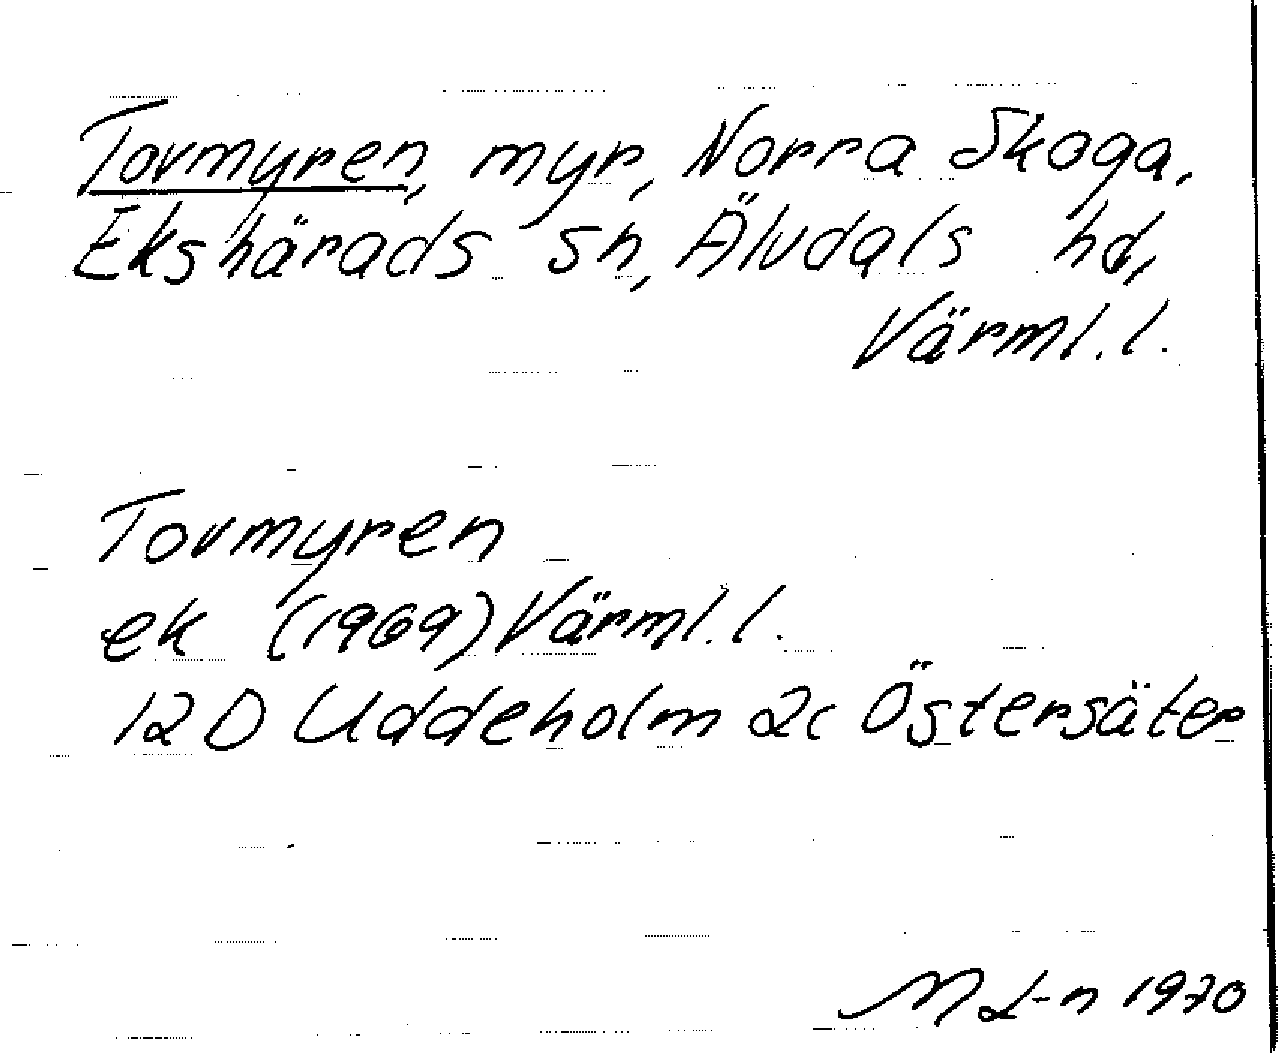 Tovmyren, myr, Norra Skoga,
Ekshärads sn, Älvdals hd,
Värml. l.
Tovmyren
ek (1969) Värml. l.
12 D Uddeholm 2c Östersäter
M L-n 1970